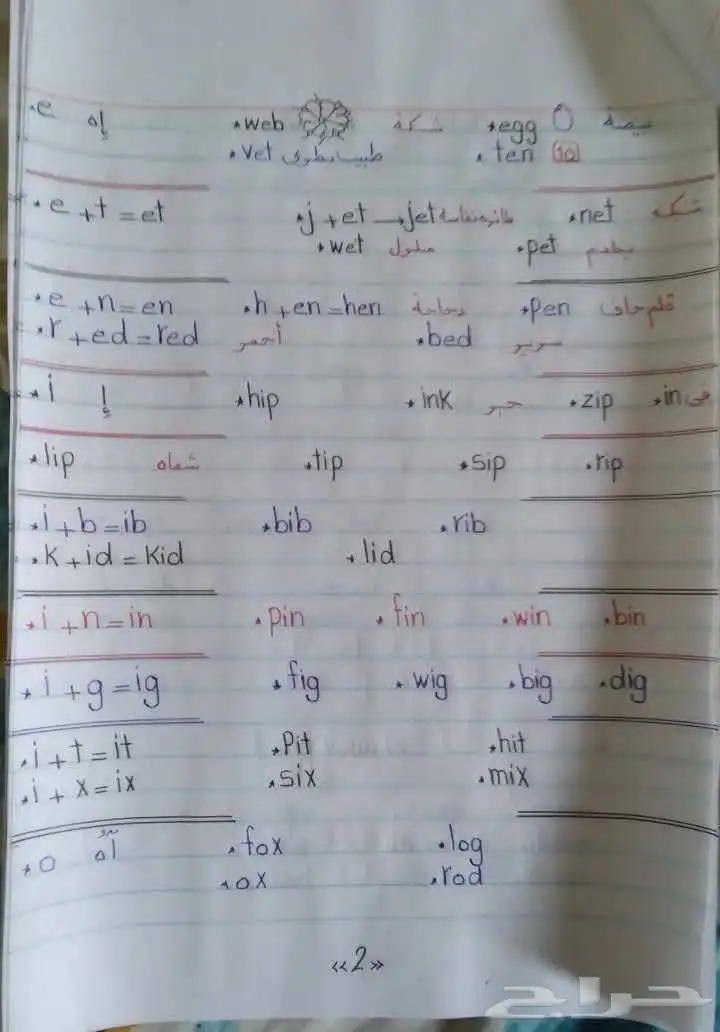 *e إه *web شبكة *egg بيضة
*vet طبيب بيطري *ten 10
*e+t=et *j+et→jet طائرة نفاثة *net شبكة
*wet مبلول *pet
*e+n=en *h+en=hen دجاجة *pen قلم جاف
*r+ed=red أحمر *bed سرير
*i إ *hip *ink حبر *zip *in في
*lip شفاه *tip *sip *rip
*i+b=ib *bib *rib
*k+id=kid *lid
*i+n=in *pin *fin *win *bin
*i+g=ig *fig *wig *big *dig
*i+t=it *Pit *hit
*i+x=ix *six *mix
*o *fox *log
*ox *rod
«2»
حراج